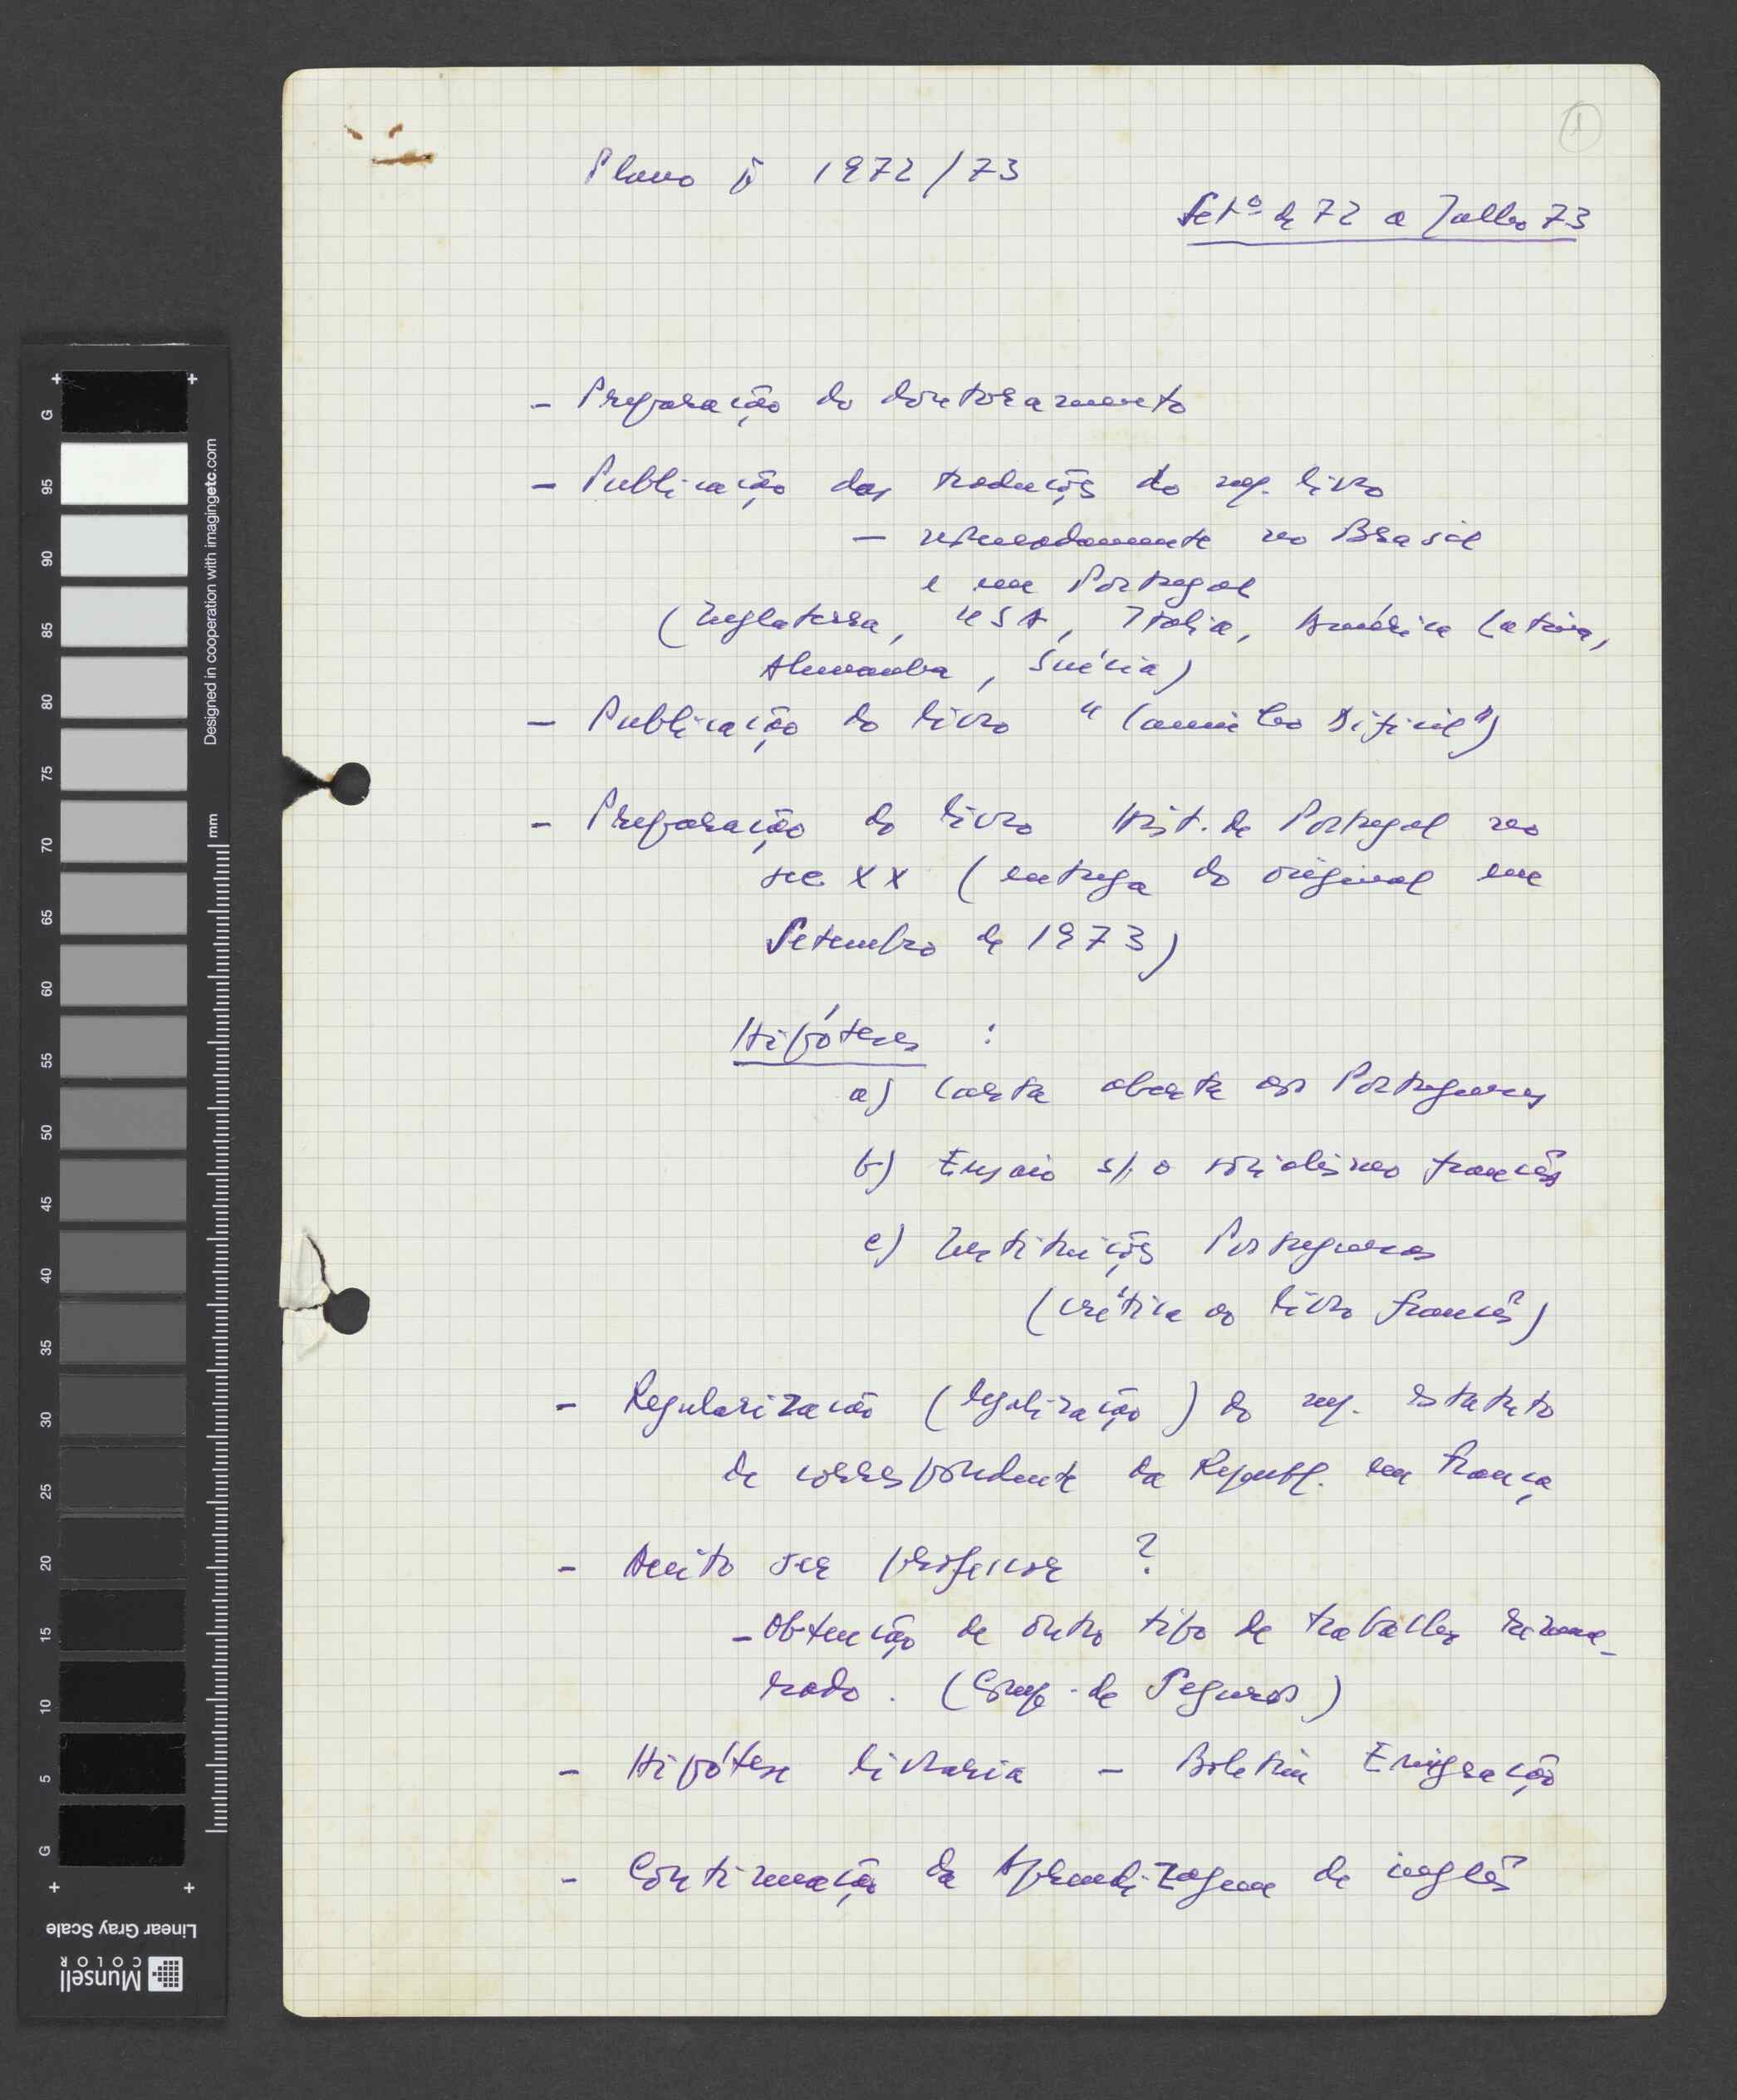 1
Plano p 1972/73
Setº de 72 a Julho 73
- Preparação do doutoramento
- Publicação das traduções do meu livro
- nomeadamente no Brasil
e em Portugal
(Inglaterra, USA, Itália, América Latina,
Alemanha, Suécia)
- Publicação do livro "Caminho Difícil")
- Preparação do livro Hist. de Portugal no
sec XX (entrega do original em
Setembro de 1973)
Hipóteses :
a) Carta aberta aos Portugueses
b) Ensaio s/ o socialismo francês
c) Instituições Portuguesas
(crítica ao livro francês)
- Regularização (legalização) do meu estatuto
de correspondente da Republ. em França
- Aceito ser professor ?
- Obtenção de outro tipo de trabalho remune-
rado. (Comp. de Seguros)
- Hipótese livraria - Boletim Emigração
- Continuação da Aprendizagem de inglês
G
95
90
85
80
75
70
65
60
55
50
45
40
35
30
25
20
15
10
5
G
Designed in cooperation with imagingetc.com
mm
Linear Gray Scale
Munsell
COLOR